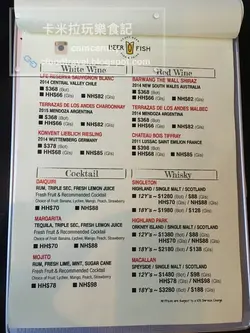 卡米拉玩樂食記
BEER FISH
White Wine
LFE RESERVA SAUVIGNON BLANC
2014 CENTRAL VALLEY CHILE
$368 (Btl)
HH$66 NH$82 (Gls)
TERRAZAS DE LOS ANDES CHARDONNAY
2015 MENDOZA ARGENTINA
$368 (Btl)
HH$66 NH$82 (Gls)
KONVENT LIEBLICH RIESLING
2014 WUTTEMBERG GERMANY
$378 (Btl)
HH$68 NH$85 (Gls)
Red Wine
BARWANG THE WALL SHIRAZ
2014 NEW SOUTH WALES AUSTRALIA
$368 (Btl)
HH$66 NH$82 (Gls)
TERRAZAS DE LOS ANDES
2014 MENDOZA ARGENTINA
$368 (Btl)
HH$66 NH$82 (Gls)
CHATEAU BOIS TIFFRAY
2011 LUSSAC SAINT EMILION FRANCE
$398 (Btl)
HH$70 NH$88 (Gls)
Cocktail
DAIQUIRI
RUM, TRIPLE SEC, FRESH LEMON JUICE
Fresh Fruit & Recommended Cocktail
Choice of Fruit: Banana, Lychee, Mango, Peach, Strawberry
HH$70 NH$88
MARGARITA
TEQUILA, TRIPLE SEC, FRESH LEMON JUICE
Fresh Fruit & Recommended Cocktail
Choice of Fruit: Banana, Lychee, Mango, Peach, Strawberry
HH$70 NH$88
MOJITO
RUM, FRESH LIME, MINT, SUGAR CANE
Fresh Fruit & Recommended Cocktail
Choice of Fruit: Lychee, Mango, Peach, Strawberry
HH$78 NH$98
Whisky
SINGLETON
HIGHLAND / SINGLE MALT / SCOTLAND
12Y's
18Y's
HIGHLAND PARK
ORKNEY ISLAND / SINGLE MALT / SCOTLAND
12Y's
18Y's
MACALLAR
SPEYSIDE / SINGLE MALT / SCOTLAND
12Y's
18Y's